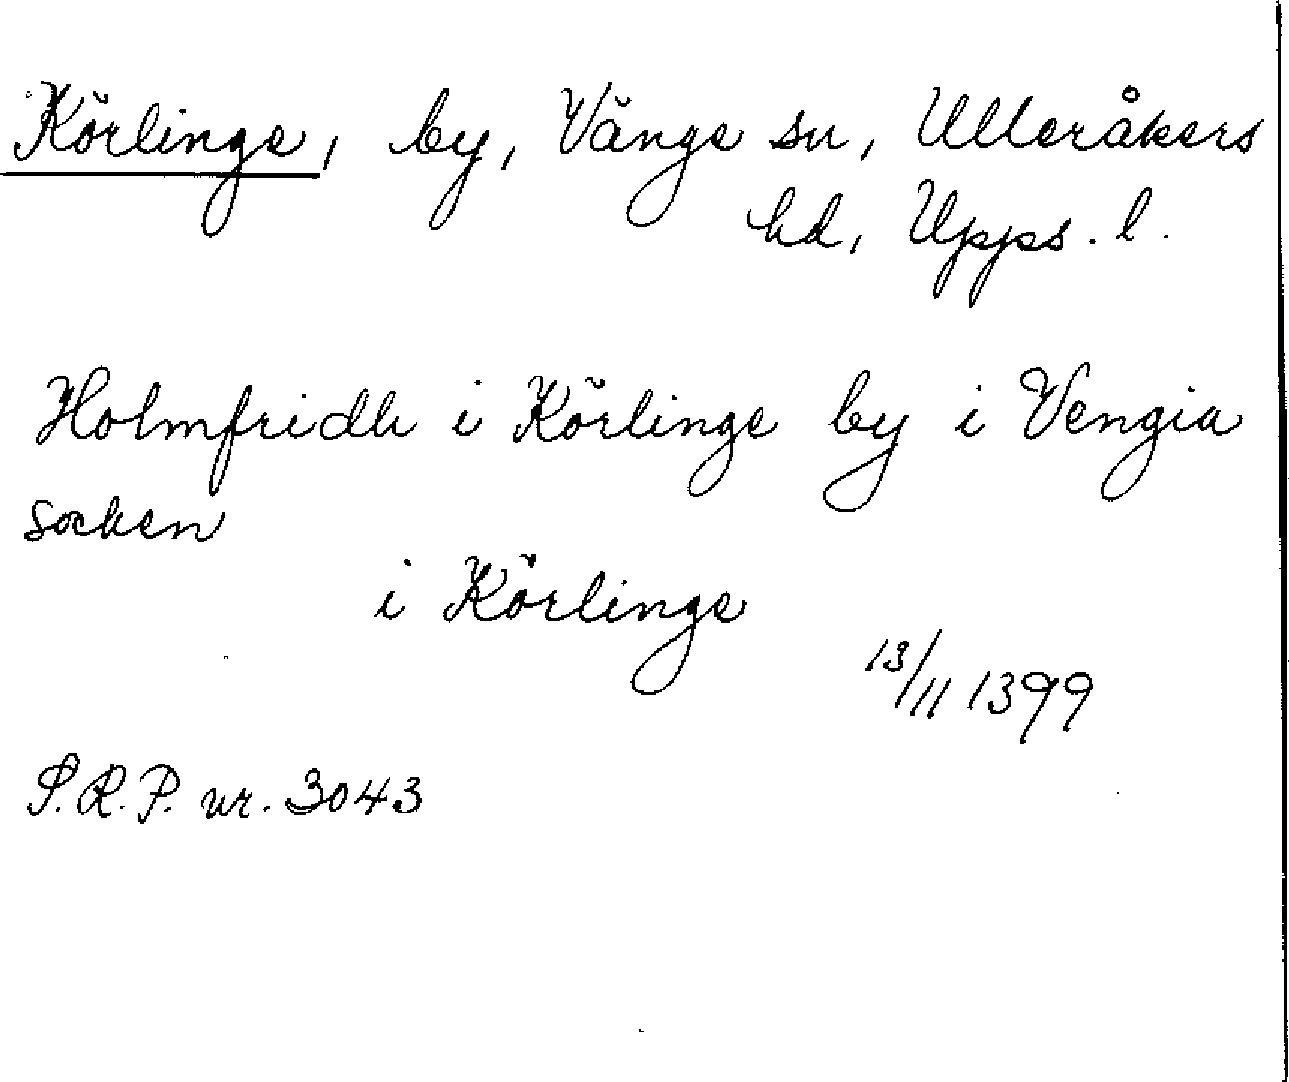 Körlinge, by, Vänge sn, Ulleråkers
hd, Upps. l.
Holmfridh i Körlinge by i Vengia
socken
i Körlinge
13/11 1399
S.R.P. nr. 3043